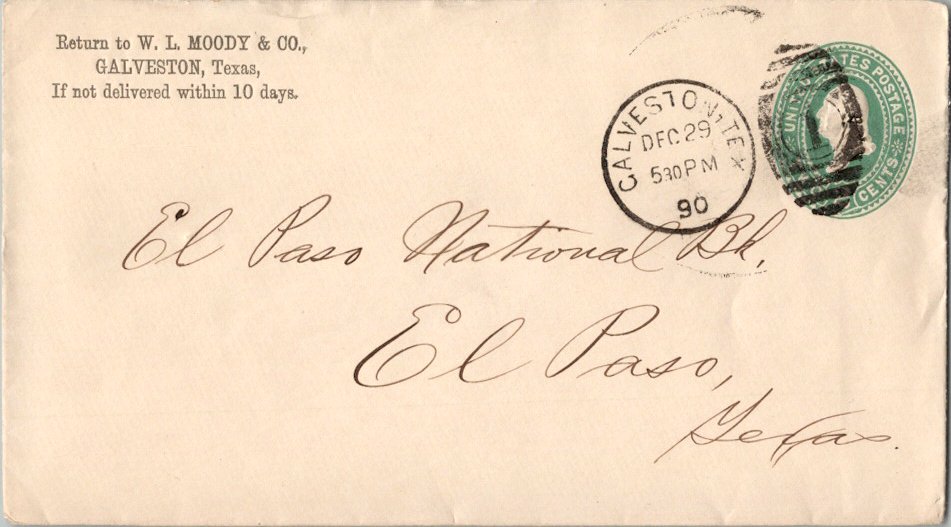 Return to W. L. MOODY & CO.,
GALVESTON, Texas,
If not delivered within 10 days.
GALVESTON, TEX
DEC 29
530 PM
90
UNITED STATES POSTAGE
CENTS
1
El Paso National Bk.
El Paso,
Texas.